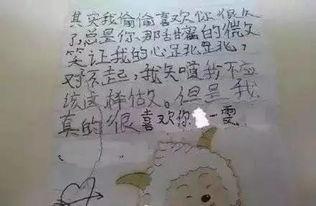 其实我偷偷喜欢你很久
了,总是你那甜蜜的微
笑让我的心
对不起,我知道我不应
该这样做。但是我
真的很喜欢你 一雯